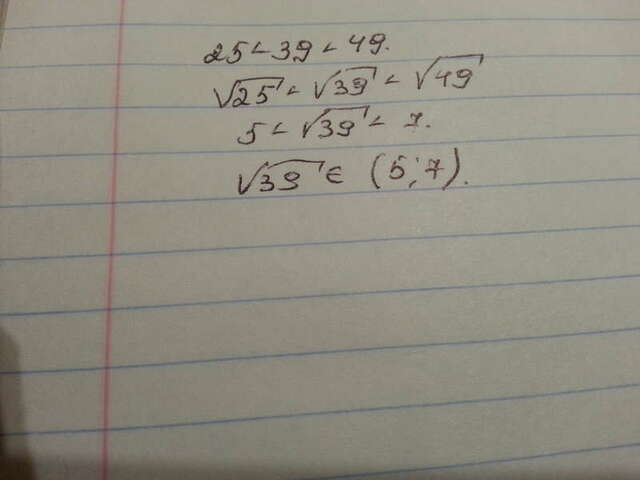 25 < 39 < 49.
√25 < √39 < √49
5 < √39 < 7.
√39 ∈ (5; 7).